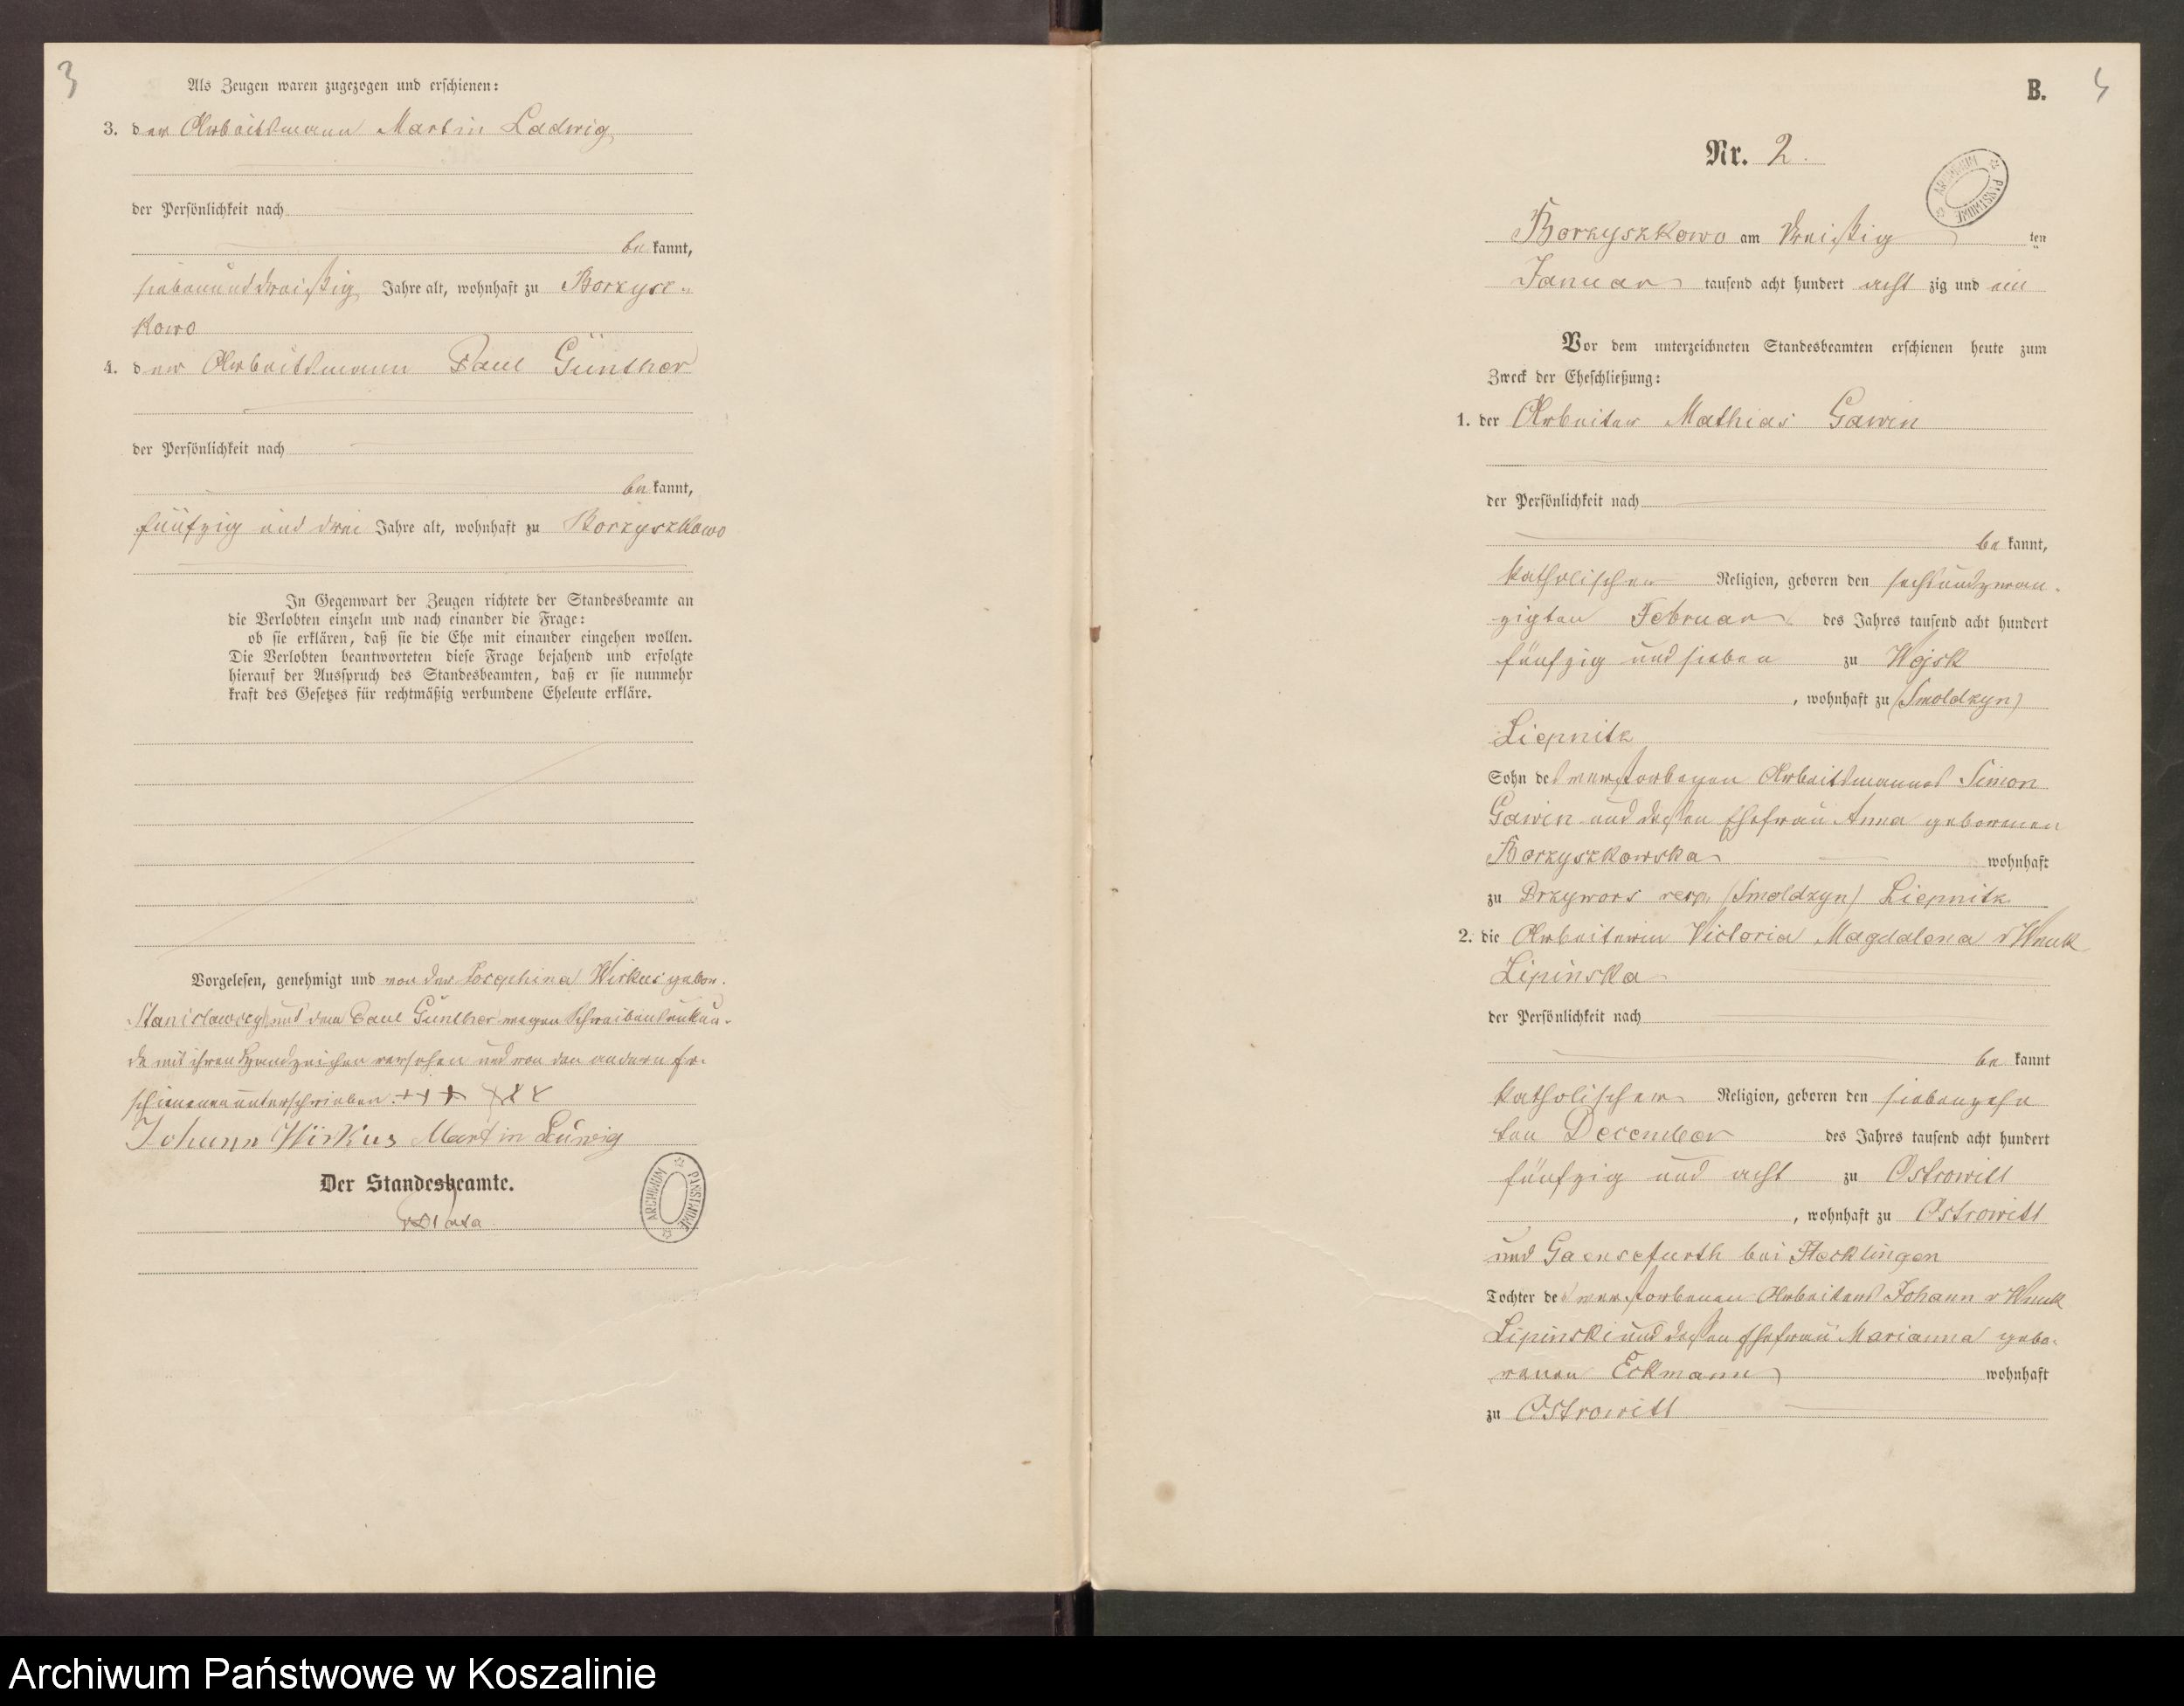 3
Als Zeugen waren zugezogen und erschienen:
3. der Arbeitsmann Martin Ladwig
der Persönlichkeit nach
be kannt,
siebenunddreißig Jahre alt, wohnhaft zu Borzysz-
kowo
4. der Arbeitsmann Paul Günther
der Persönlichkeit nach
be kannt,
fünfzig und drei Jahre alt, wohnhaft zu Borzyszkowo
In Gegenwart der Zeugen richtete der Standesbeamte an
die Verlobten einzeln und nach einander die Frage:
ob sie erklären, daß sie die Ehe mit einander eingehen wollen.
Die Verlobten beantworteten diese Frage bejahend und erfolgte
hierauf der Ausspruch des Standesbeamten, daß er sie nunmehr
kraft des Gesetzes für rechtmäßig verbundene Eheleute erkläre.
Vorgelesen, genehmigt und von der Josephina Wirkus gebor.
und dem Paul Günther wegen Schreibensunkun-
de mit ihren Handzeichen versehen und von den andern Er-
schienenen unterschrieben. +++ XXX
Johann Wirkus Martin Ladwig
Der Standesbeamte.
ARCHIWUM PAŃSTWOWE
B.
Nr. 2.
ARCHIWUM PAŃSTWOWE
Borzyszkowo am dreißig ten
Januar tausend acht hundert acht zig und ein
Vor dem unterzeichneten Standesbeamten erschienen heute zum
Zweck der Eheschließung:
1. der Arbeiter Mathias Gawin
der Persönlichkeit nach
be kannt,
katholischer Religion, geboren den sechsundzwan-
zigten Februar des Jahres tausend acht hundert
fünfzig und sieben zu Wojsk
, wohnhaft zu (Smoldzyn)
Liepnitz
Sohn des verstorbenen Arbeitsmannes Simon
Gawin und dessen Ehefrau Anna geborenen
Borzyszkowska wohnhaft
zu Przywors resp. (Smoldzyn) Liepnitz
2. die Arbeiterin Victoria Magdalena v Wnuk
Lipinska
der Persönlichkeit nach
be kannt
katholischer Religion, geboren den siebenzehn
ten December des Jahres tausend acht hundert
fünfzig und acht zu Ostrowitt
, wohnhaft zu Ostrowitt
und Gaensefurth bei Hecklingen
Tochter des verstorbenen Arbeiters Johann v Wnuk
Lipinski und dessen Ehefrau Marianna gebo-
renen Eckmann wohnhaft
zu Ostrowitt
Archiwum Państwowe w Koszalinie